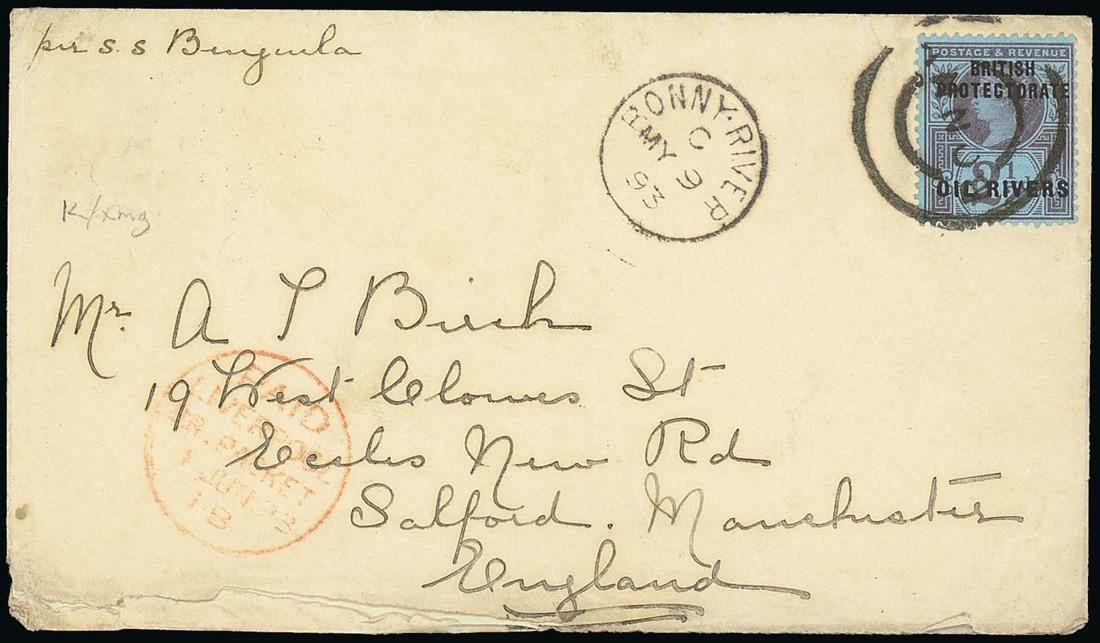 per S.S Benguela
POSTAGE & REVENUE
BRITISH
PROTECTORATE
2½
OIL RIVERS
BONNY·RIVER
C
MY 9
93
Mr. A T Birch
19 West Clowes St
Eccles New Rd
Salford. Manchester
England
PAID
LIVERPOOL
BR. PACKET
1 JUN 93
1·B